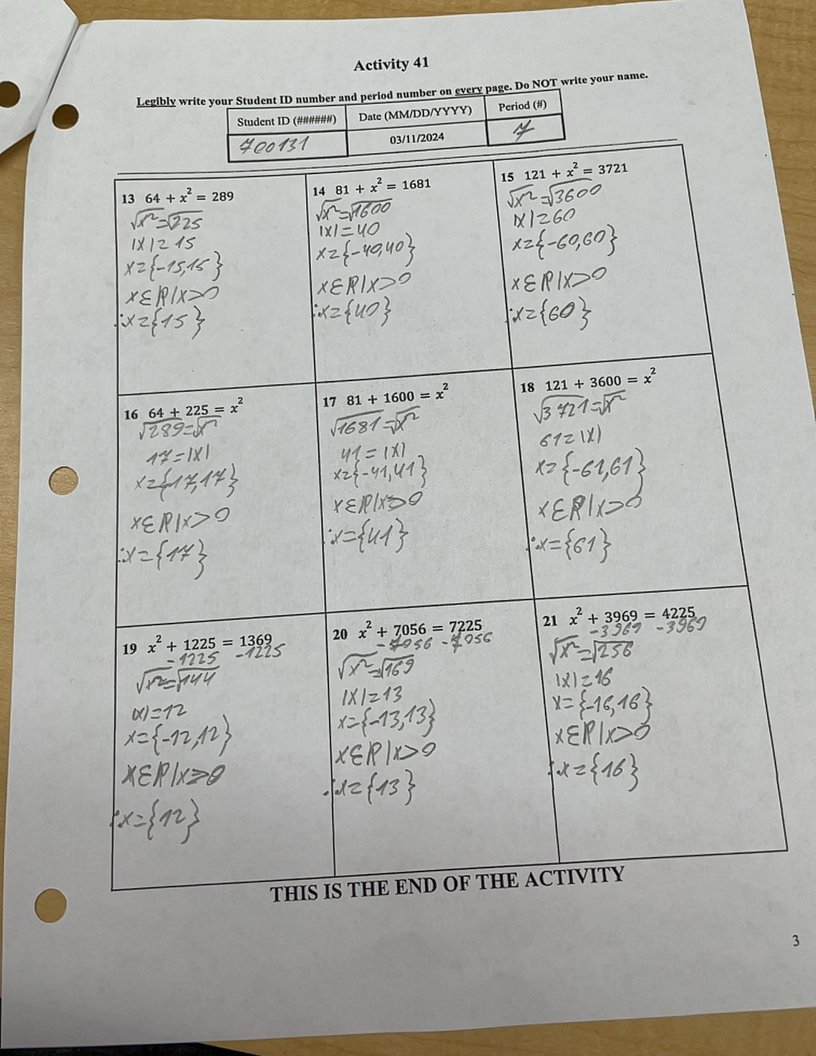 Activity 41
Legibly write your Student ID number and period number on every page. Do NOT write your name.
Student ID (######) Date (MM/DD/YYYY) Period (#)
700131 03/11/2024 7
13 64 + x² = 289
√x²=√225
|x|=15
x={-15,15}
xεℝ|x>0
∴x={15}
14 81 + x² = 1681
√x²=√1600
|x|=40
x={-40,40}
xεℝ|x>0
∴x={40}
15 121 + x² = 3721
√x²=√3600
|x|=60
x={-60,60}
xεℝ|x>0
∴x={60}
16 64 + 225 = x²
√289=√x²
17=|x|
x={-17,17}
xεℝ|x>0
∴x={17}
17 81 + 1600 = x²
√1681=√x²
41=|x|
x={-41,41}
xεℝ|x>0
∴x={41}
18 121 + 3600 = x²
√3721=√x²
61=|x|
x={-61,61}
xεℝ|x>0
∴x={61}
19 x² + 1225 = 1369
-1225 -1225
√x²=√144
|x|=12
x={-12,12}
xεℝ|x>0
∴x={12}
20 x² + 7056 = 7225
-7056 -7056
√x²=√169
|x|=13
x={-13,13}
xεℝ|x>0
∴x={13}
21 x² + 3969 = 4225
-3969 -3969
√x²=√256
|x|=16
x={-16,16}
xεℝ|x>0
∴x={16}
THIS IS THE END OF THE ACTIVITY
3